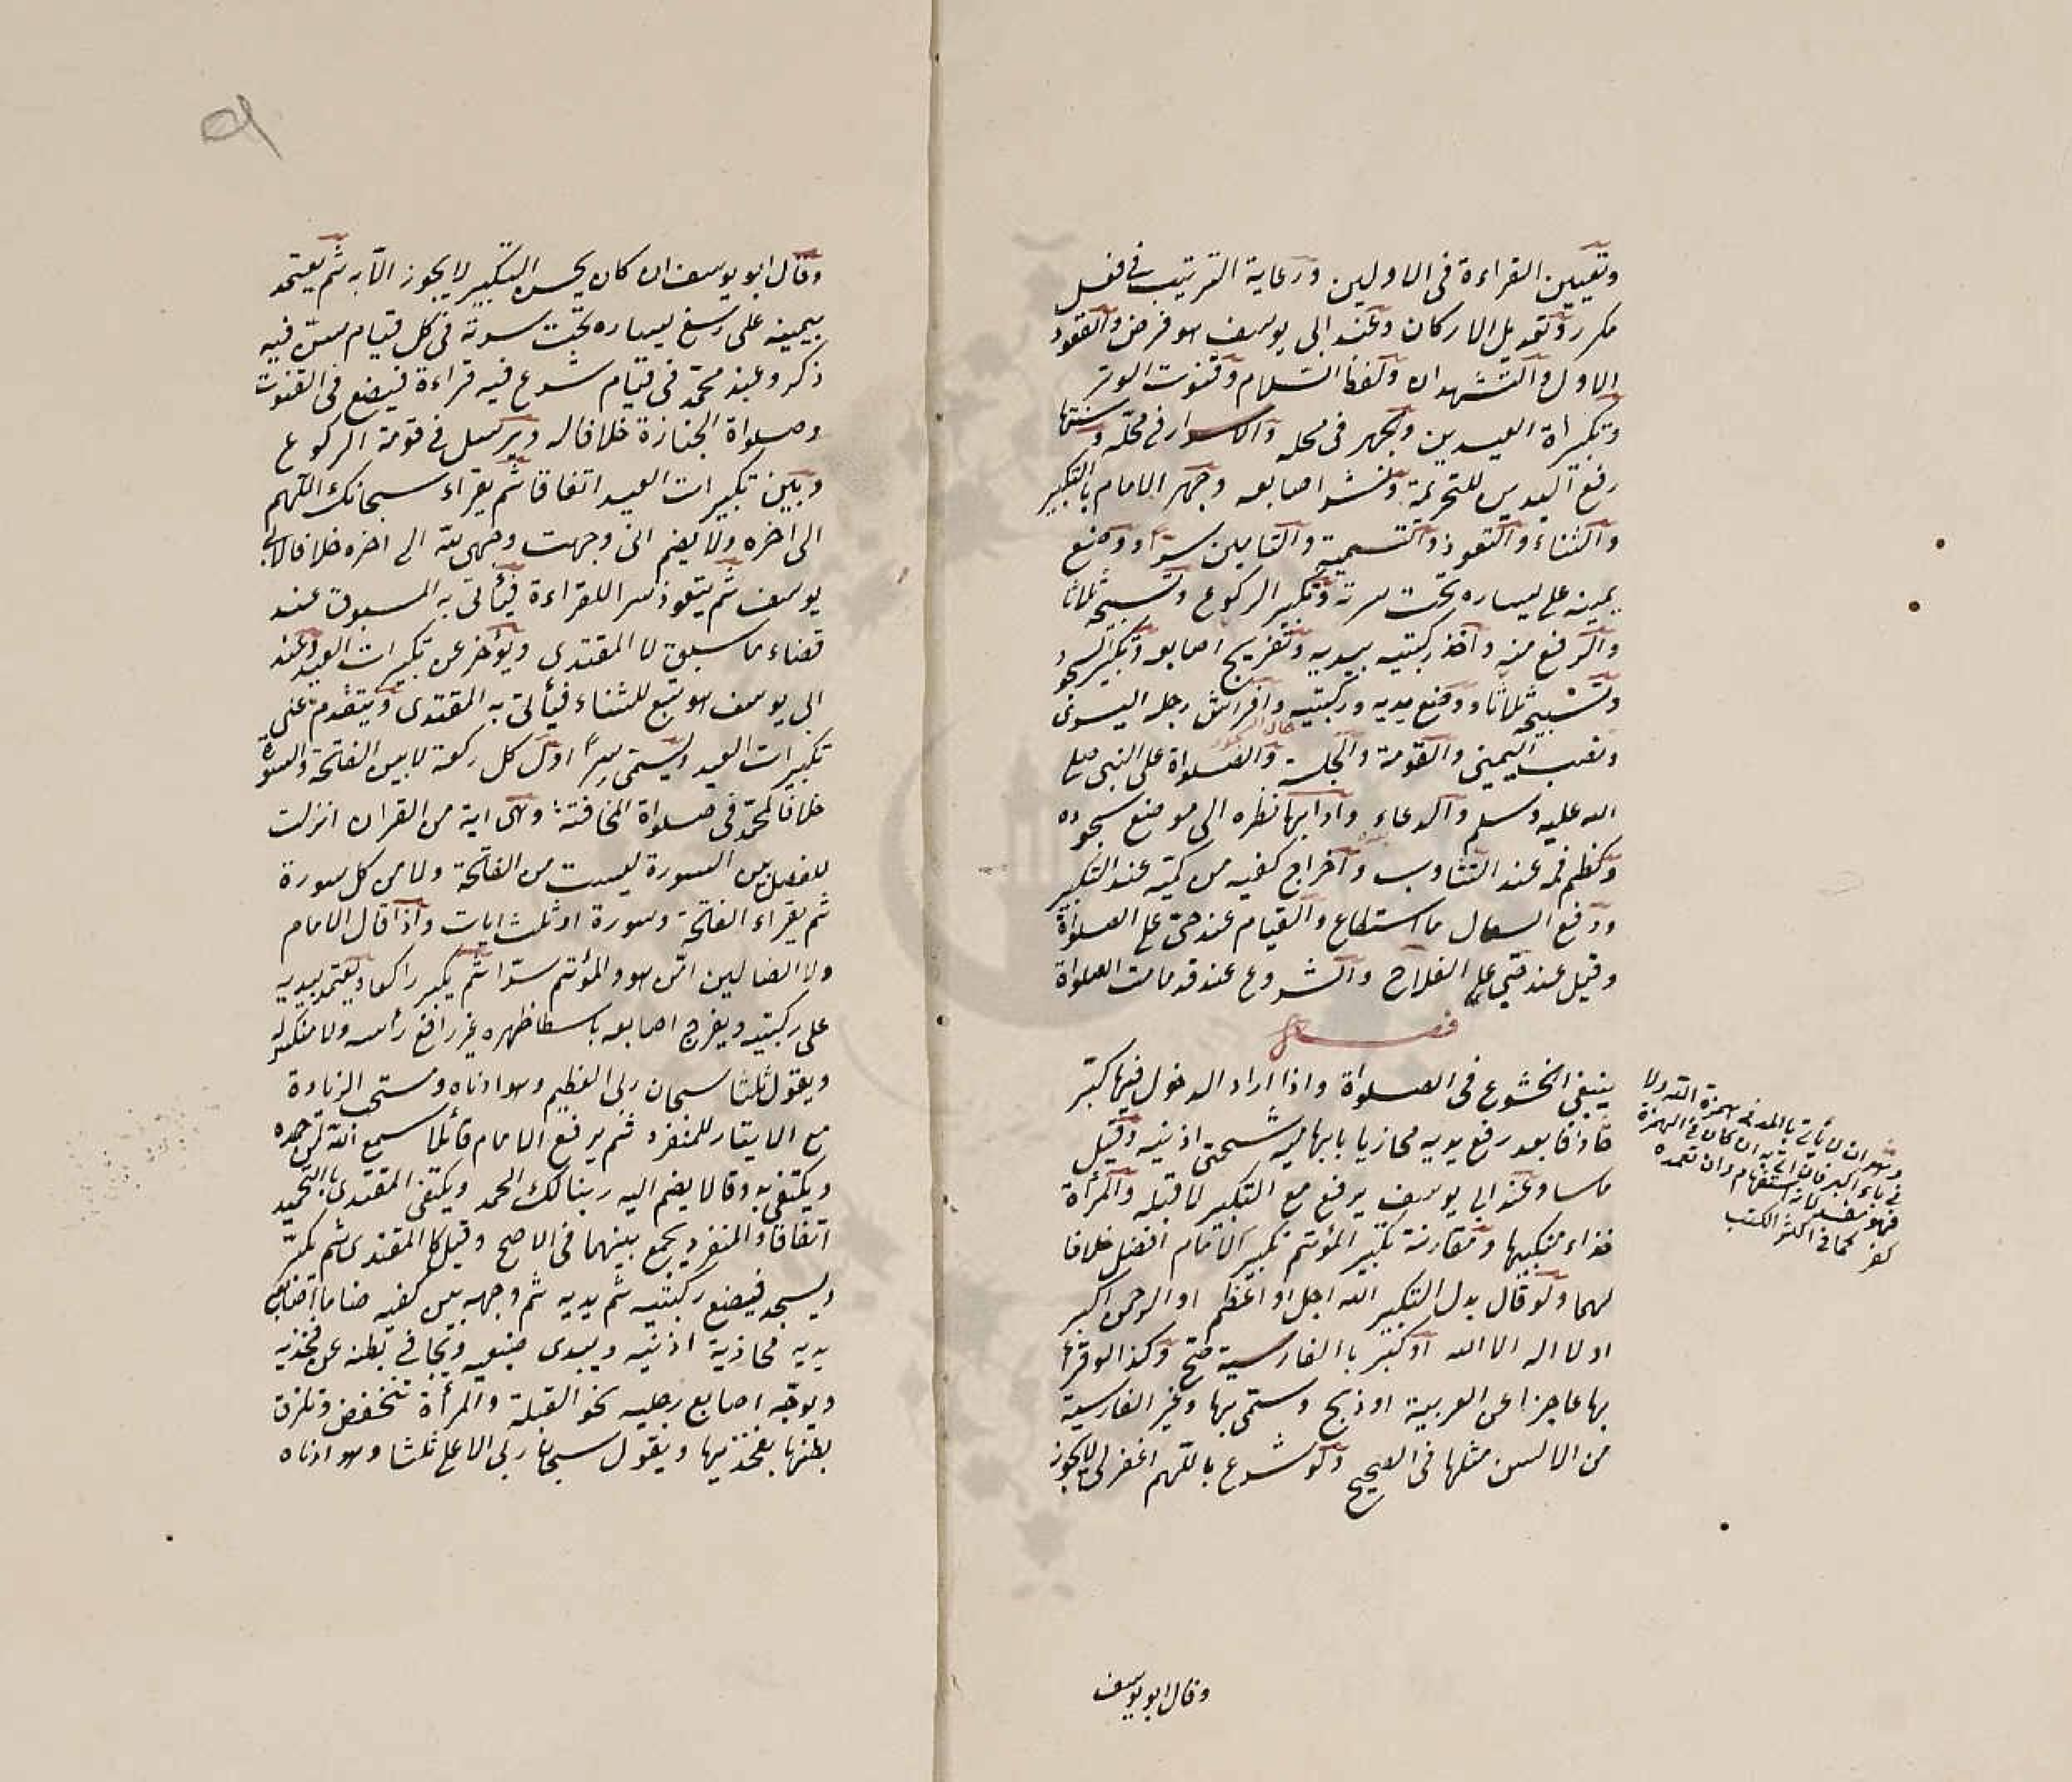 وتعيين القراءة فى الاوليين ورعاية الترتيب فى فعل
مكرر وتعديل الاركان وعند ابى يوسف هو فرض والقعود
الاول والتشهدان ولفظ السلام وقنوت الوتر
وتكبيراة العيدين والجهر فى محله والاسرار فى محله وسننها
رفع اليدين للتحريمة ونشر اصابعه وجهر الامام بالتكبير
والثناء والتعوذ والتسمية والتامين سرّا ووضع
يمينه على يساره تحت سرته وتكبير الركوع وتسبيحه ثلاثا
والرفع منه واخذ ركبتيه بيديه وتفريج اصابعه وتكبير السجود
وتسبيحه ثلاثا ووضع يديه وركبتيه وافراش رجله اليسرى
ونصب اليمنى والقومة والجلسة والصلواة على النبى صلى
الله عليه وسلم والدعاء وادابها نظره الى موضع سجوده
وكظم فمه عند التثاوب واخراج كفيه من كميه عند التكبير
ودفع السعال ما استطاع والقيام عند حى على الصلواة
وقيل عند حى على الفلاح والشروع عند قد قامت الصلواة
فصل
ينبغى الخشوع فى الصلواة واذا اراد الدخول فيها كبّر
حاذفا بعد رفع يديه محازيا بابهاميه شحمتى اذنيه وقيل
ماسا وعند ابى يوسف يرفع مع التكبير لا قبله والمرأة
حذاء منكبيها ومقارنة تكبير المؤتم تكبير الامام افضل خلافا
لهما ولو قال بدل التكبير الله اجل او اعظم او الرحمن اكبر
او لا اله الا الله او كبّر با الفارسية صحّ وكذا لو قرأ
بها عاجزا عن العربية او ذبح وسمّى بها وغير الفارسية
من الالسن مثلها فى الصحيح ولو شرع باللّهم اغفر لى لا يجوز
وقال ابو يوسف
وهو ان لا يأتى بالمد فى همزة الله ولا
فى باء اكبر فان اتى به ان كان فى الهمزة
فهو مفسد لانه استفهام وان تعمده
كفر كما فى اكثر الكتب
وقال ابو يوسف ان كان يحسن التكبير لا يجوز الّا به ثم يعتمد
بيمينه على رسغ يساره تحت سرته فى كل قيام سنّ فيه
ذكر وعند محمّد فى قيام شرع فيه قراءة فيضع فى القنوت
وصلواة الجنازة خلافا له ويرسل فى قومة الركوع
وبين تكبيرات العيد اتفاقا ثم يقراء سبحانك اللّهم
الى اخره ولا يضم انى وجهت وجهى للّه الى اخره خلافا لابى
يوسف ثم يتعوذ سرا للقراءة فيأتى به المسبوق عند
قضاء ما سبق لا المقتدى ويؤخر عن تكبيرات العيد وعند
ابى يوسف هو تبع للثناء فيأتى به المقتدى ويتقدم على
تكبيرات العيد ويسمّى سرّا اول كل ركعة لا بين الفتحة والسورة
خلافا لمحمّد فى صلواة المخافتة وهى اية من القران انزلت
للفصل بين السورة ليست من الفاتحة ولا من كل سورة
ثم يقراء الفاتحة وسورة او ثلث ايات واذا قال الامام
ولا الضالين امّن هو والمؤتم سرّا ثم يكبر راكعا ويعتمد بيديه
على ركبتيه ويفرج اصابعه باسطا ظهره غير رافع رأسه ولا منكسه
ويقول ثلثا سبحان ربى العظيم وهو ادناه ومستحب الزيادة
مع الايتار للمنفرد ثم يرفع الامام قائلا سمع اللّه لمن حمده
ويكتفى به وقالا يضم اليه ربنا لك الحمد ويكتفى المقتدى باالتحميد
اتفاقا والمنفرد يجمع بينهما فى الاصح وقيل كا المقتدى ثم يكبّر
ويسجد فيضع ركبتيه ثم يديه ثم وجهه بين كفيه ضاما اصابع
يديه محاذية اذنيه ويبدى ضبعيه ويجافى بطنه عن فخذيه
ويوجّه اصابع رجليه نحو القبلة والمرأة تنخفض وتلزق
بطنها بفخذيها ويقول سبحان ربى الاعلى ثلثا وهو ادناه